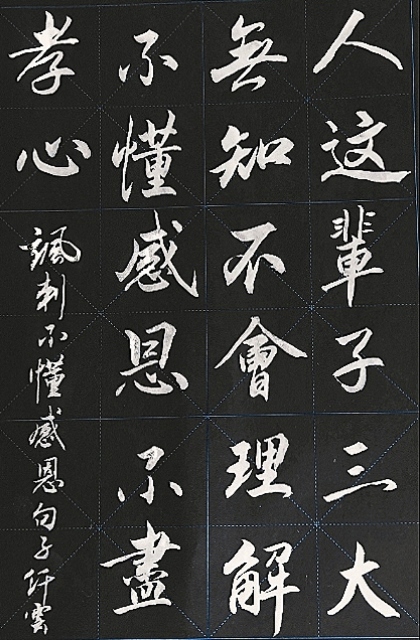 人这輩子三大
無知不會理解
不懂感恩不盡
孝心
諷刺不懂感恩句子仟雲